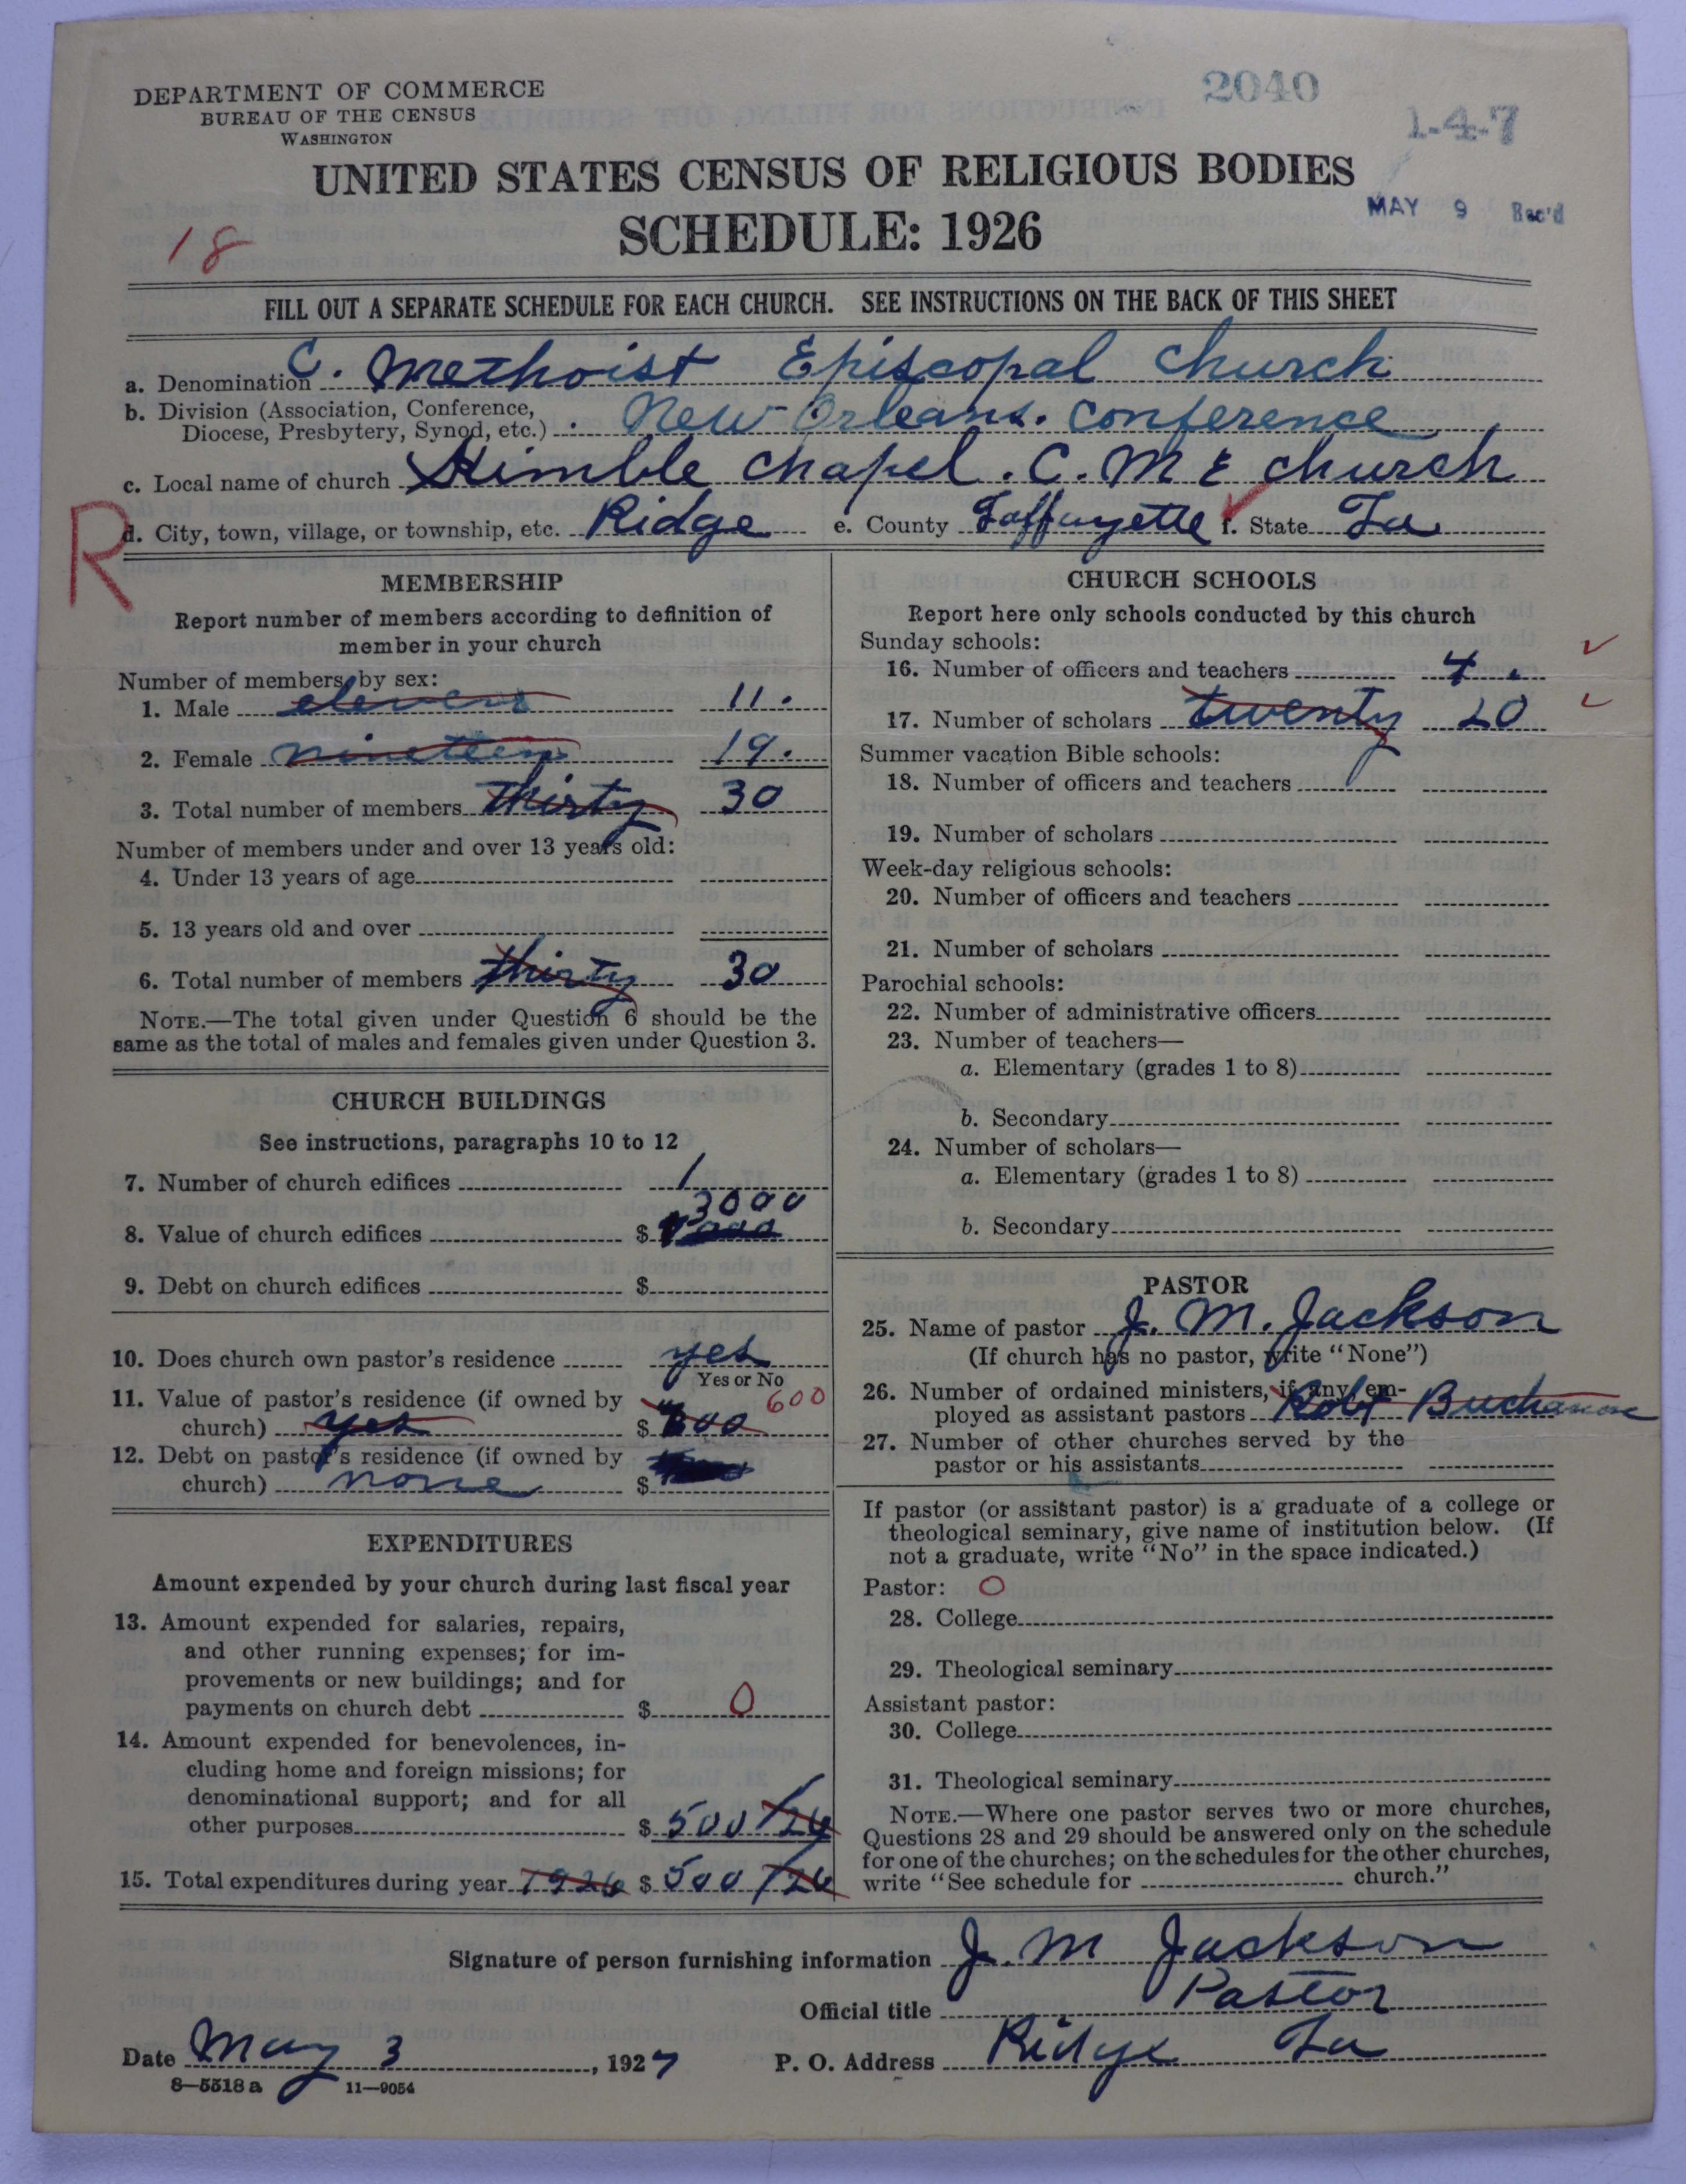 2040
1-4-7
DEPARTMENT OF COMMERCE
BUREAU OF THE CENSUS
WASHINGTON
UNITED STATES CENSUS OF RELIGIOUS BODIES
MAY 9 Rec'd
SCHEDULE: 1926
18
FILL OUT A SEPARATE SCHEDULE FOR EACH CHURCH. SEE INSTRUCTIONS ON THE BACK OF THIS SHEET
a. Denomination C. Methoist Episcopal Church
b. Division (Association, Conference,
Diocese, Presbytery, Synod, etc.) New Orleans. Conference
c. Local name of church Kimble Chapel. C. M E Church
R
d. City, town, village, or township, etc. Ridge e. County Laffayette f. State La
MEMBERSHIP
Report number of members according to definition of
member in your church
Number of members by sex:
1. Male eleven 11.
2. Female nineteen 19.
3. Total number of members thirty 30
Number of members under and over 13 years old:
4. Under 13 years of age
5. 13 years old and over
6. Total number of members thirty 30
NOTE.—The total given under Question 6 should be the
same as the total of males and females given under Question 3.
CHURCH BUILDINGS
See instructions, paragraphs 10 to 12
7. Number of church edifices 1
3000
8. Value of church edifices $
9. Debt on church edifices $
10. Does church own pastor's residence yes
Yes or No
11. Value of pastor's residence (if owned by 600
church) yes $
12. Debt on pastor's residence (if owned by
church) none $
EXPENDITURES
Amount expended by your church during last fiscal year
13. Amount expended for salaries, repairs,
and other running expenses; for im-
provements or new buildings; and for
payments on church debt $ 0
14. Amount expended for benevolences, in-
cluding home and foreign missions; for
denominational support; and for all
other purposes $ 500 /26
15. Total expenditures during year 1926 $ 500 /26
CHURCH SCHOOLS
Report here only schools conducted by this church
Sunday schools:
16. Number of officers and teachers 4.
17. Number of scholars twenty 20
Summer vacation Bible schools:
18. Number of officers and teachers
19. Number of scholars
Week-day religious schools:
20. Number of officers and teachers
21. Number of scholars
Parochial schools:
22. Number of administrative officers
23. Number of teachers—
a. Elementary (grades 1 to 8)
b. Secondary
24. Number of scholars—
a. Elementary (grades 1 to 8)
b. Secondary
PASTOR
25. Name of pastor J. M. Jackson
(If church has no pastor, write "None")
26. Number of ordained ministers, if any, em-
ployed as assistant pastors Robt Buchanan
27. Number of other churches served by the
pastor or his assistants
If pastor (or assistant pastor) is a graduate of a college or
theological seminary, give name of institution below. (If
not a graduate, write "No" in the space indicated.)
Pastor: O
28. College
29. Theological seminary
Assistant pastor:
30. College
31. Theological seminary
NOTE.—Where one pastor serves two or more churches,
Questions 28 and 29 should be answered only on the schedule
for one of the churches; on the schedules for the other churches,
write "See schedule for church."
Signature of person furnishing information J. M Jackson
Official title Pastor
Date May 3, 1927 P. O. Address Ridge La
8—5518 a 11—9054